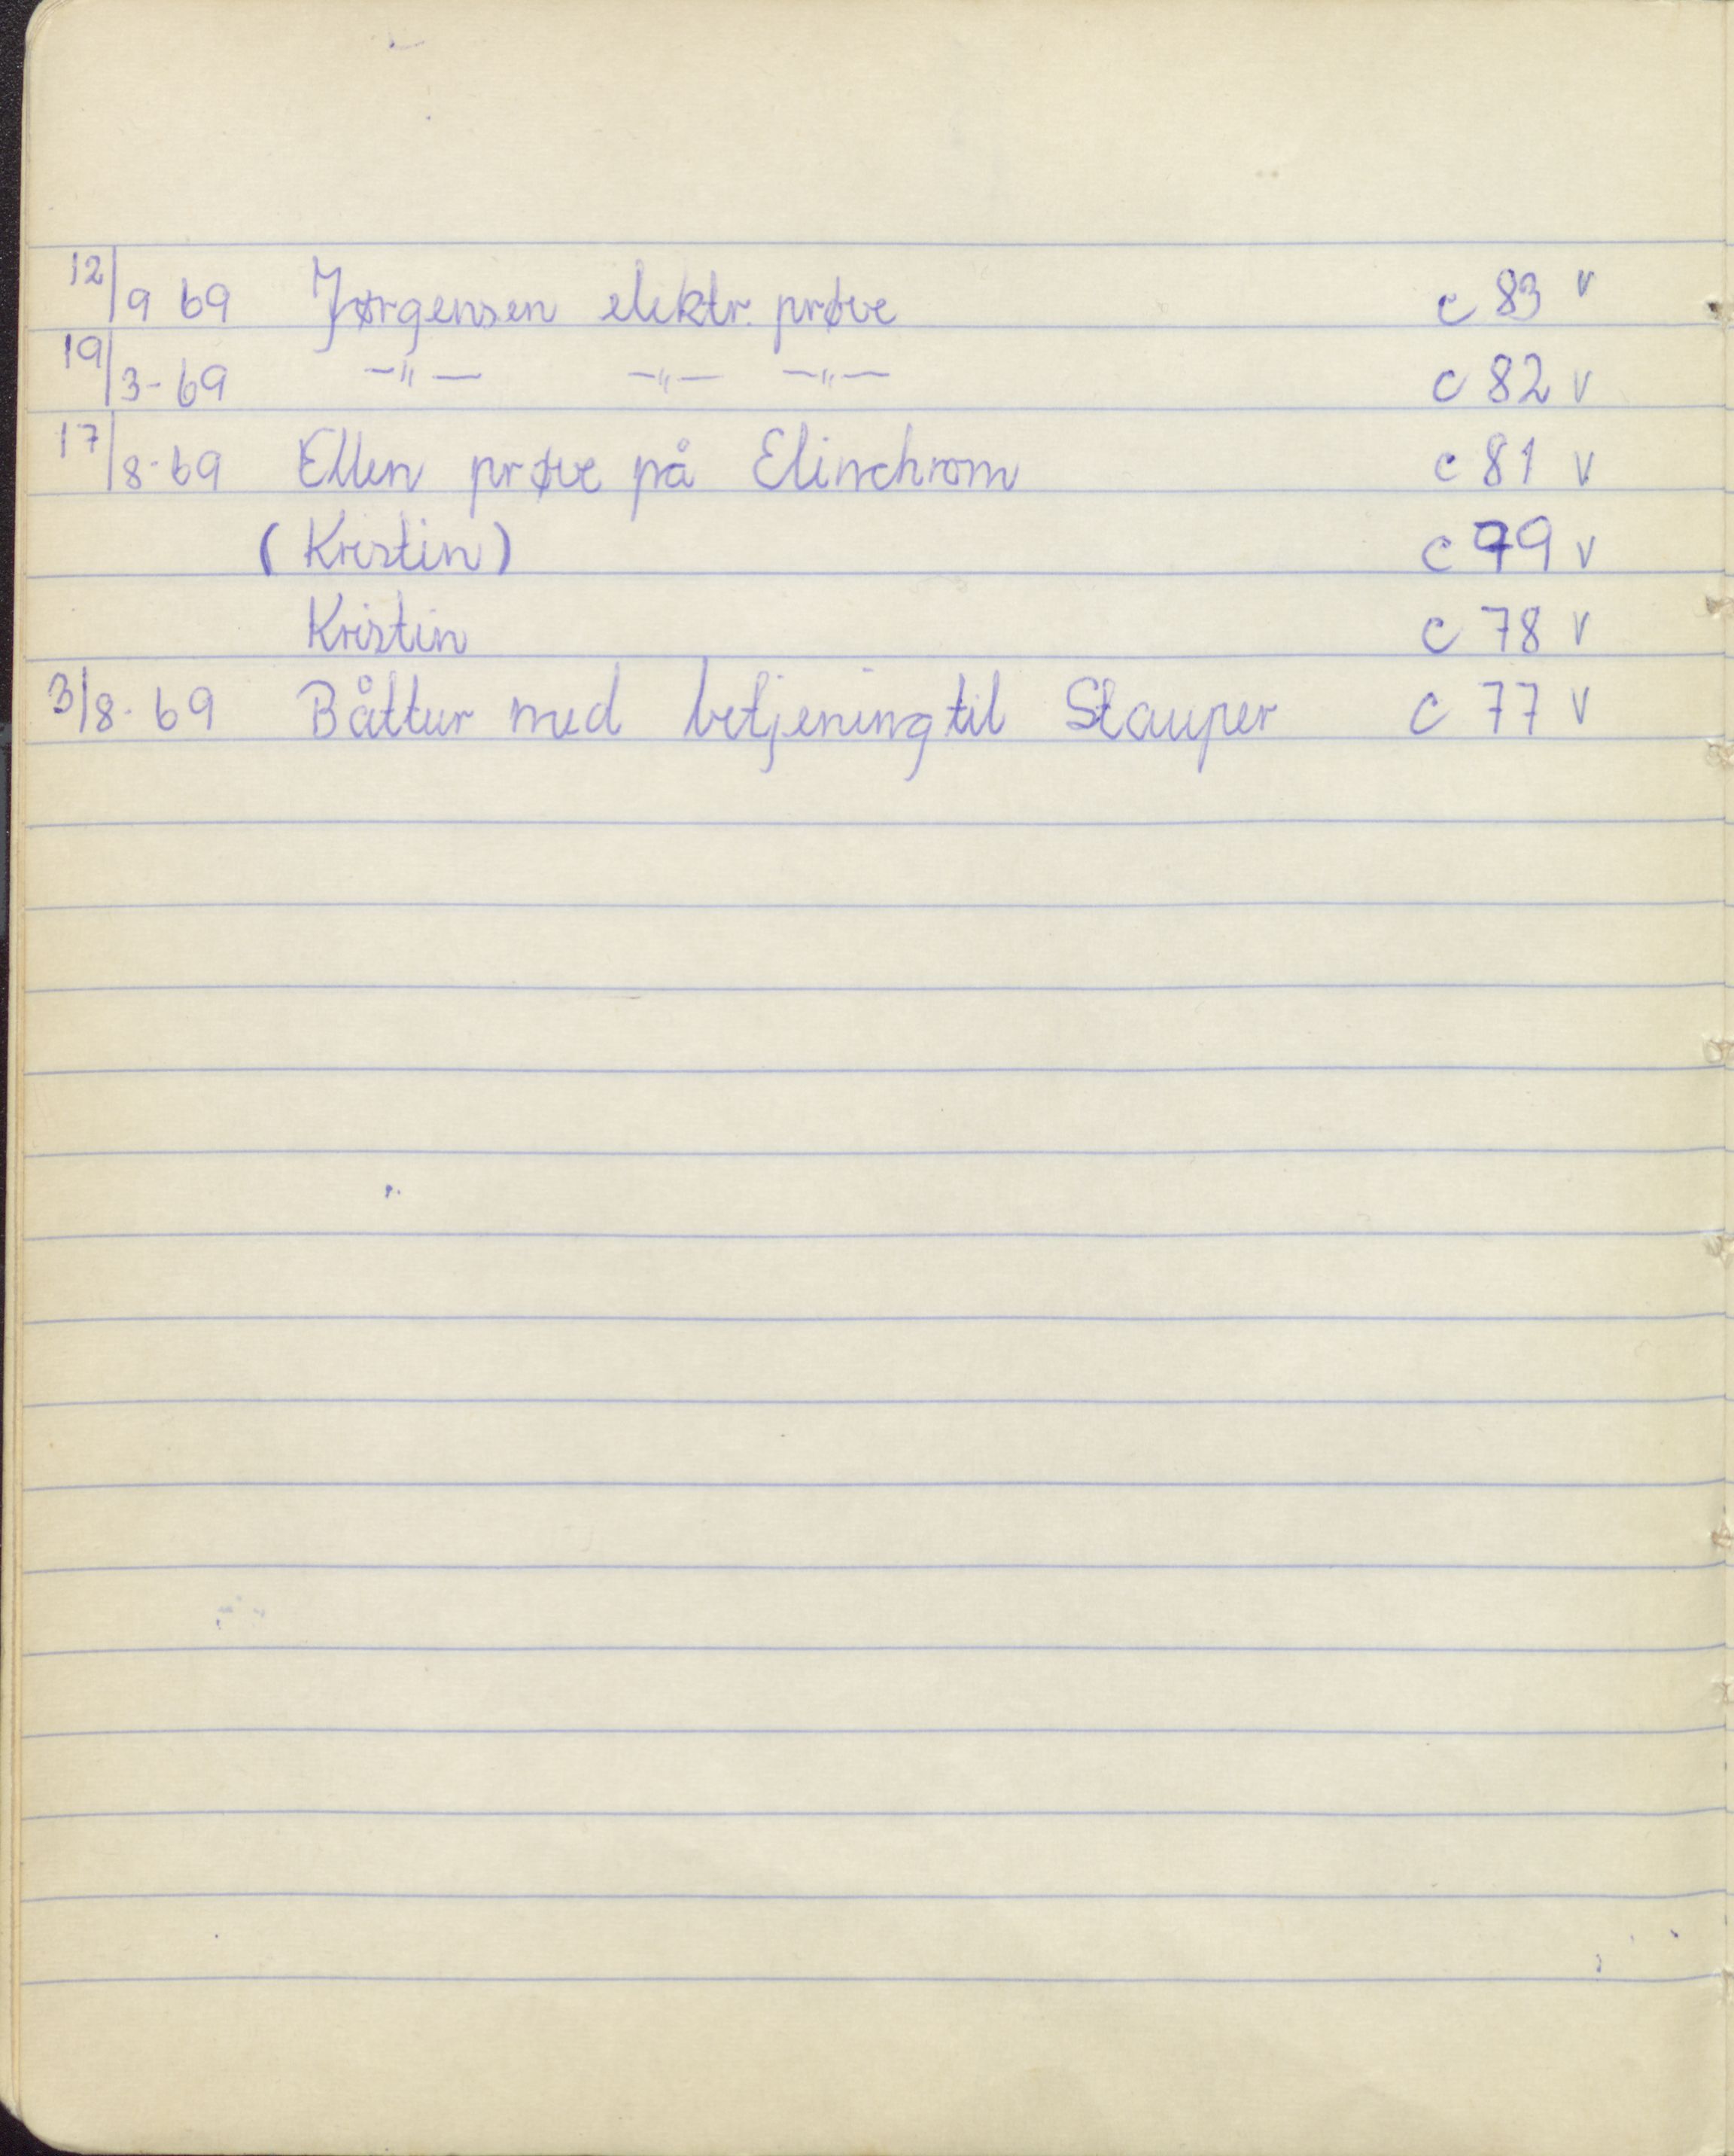 12/9 69 Jørgensen elektr. prøve c 83 v
19/3-69 —"— —"— —"— c 82 v
17/8-69 Ellen prøve på Elinchrom c 81 v
(Kristin) c 79 v
Kristin c 78 v
3/8-69 Båttur med betjening til Stauper c 77 v